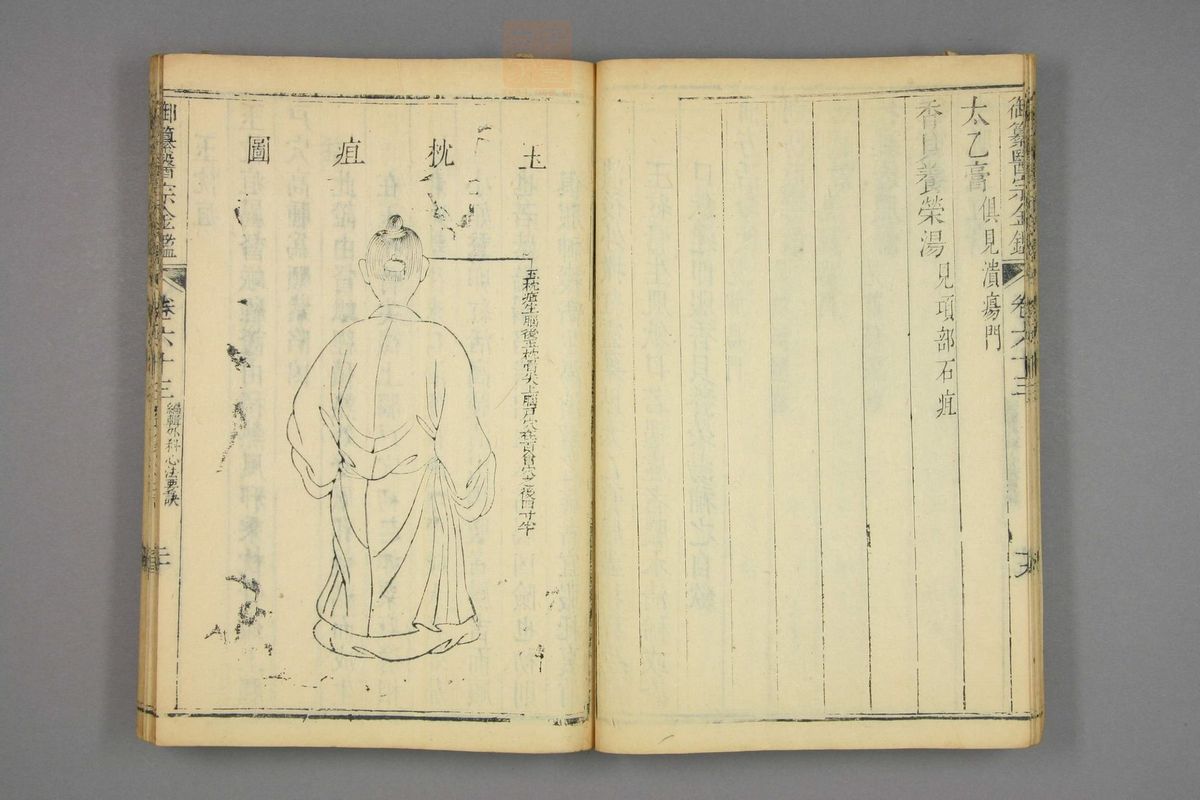 御纂醫宗金鑑 卷六十三
太乙膏 俱見潰瘍門
香貝養榮湯 見項部石疽
玉枕疽圖
玉枕疽生腦後玉枕骨尖上腦戶穴在百會穴之後四寸半
御纂醫宗金鑑 卷六十三 編輯外科心法要訣